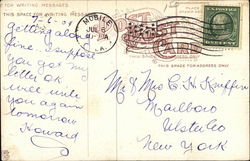 FOR WRITING MESSAGES
THIS SPACE FOR WRITING MESSAGES
PLACE
POST CARD
MOBILE
JUL 6
ALA.
7-6-
Getting along
fine. I suppose
you got my
letter OK
will write
you again
tomorrow
Howard
THIS SPACE FOR ADDRESS ONLY
Mr & Mrs C. H. Kniffin
Marlboro
Ulster Co
New York